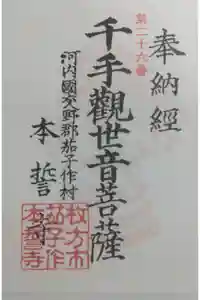 奉納經
第二十九番
千手觀世音菩薩
河内國交野郡茄子作村
本誓寺
枚方市
茄子作
本誓寺